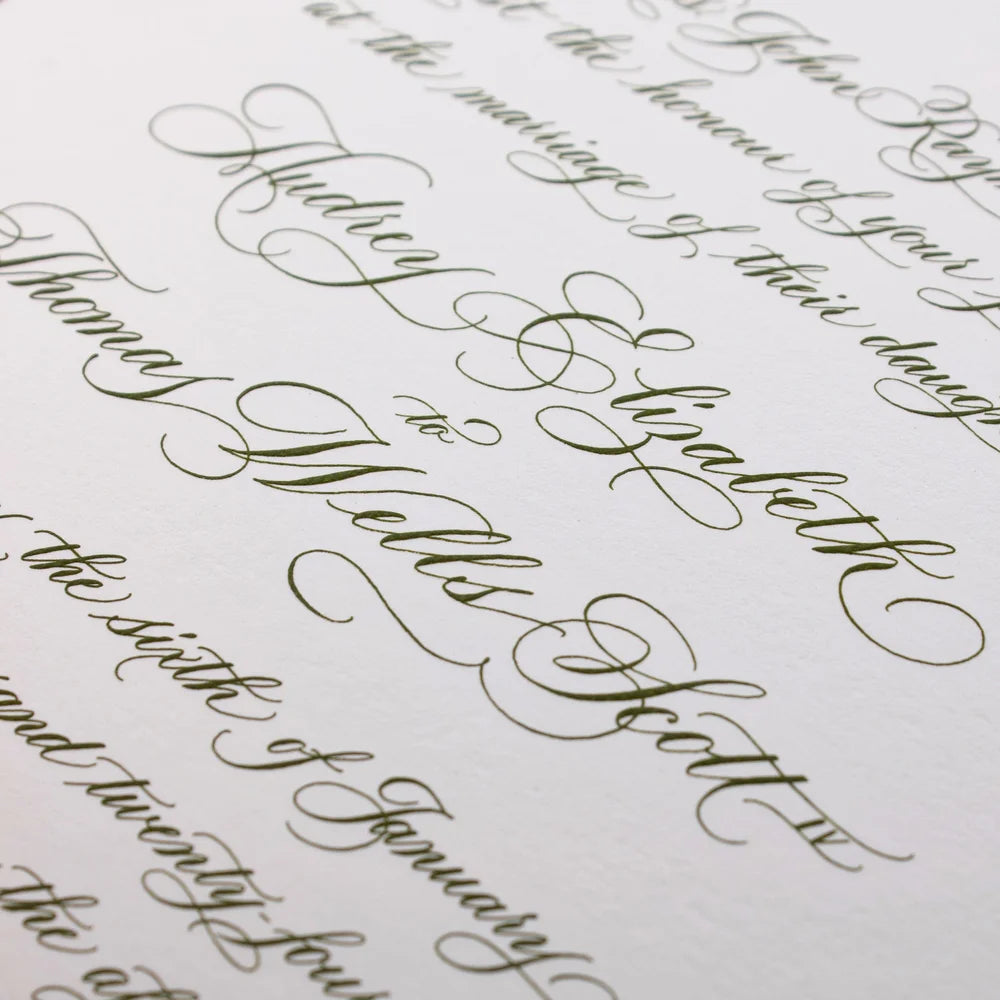 John Raym
st the honour of your
at the marriage of their daugh
Audrey Elizabeth
to
Thomas Wells Scott IV
the sixth of January
and twenty-four
the